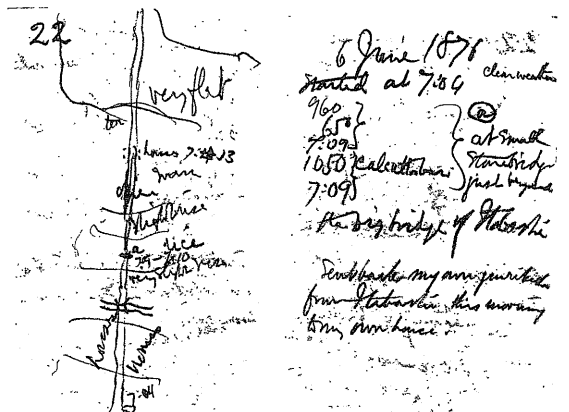 22
very flat
houses 7:13
open
slight rise
rice
a
7:9 - 7:10
very slight rise
houses
houses
7:04
6 June 1876
Started at 7:04 clear weather
960
650
7:09
1050
7:09
a
at small
stone bridge
just beyond
the big bridge of Itabashi
Sent back my own jinrikisha
from Itabashi this morning
to my own house.